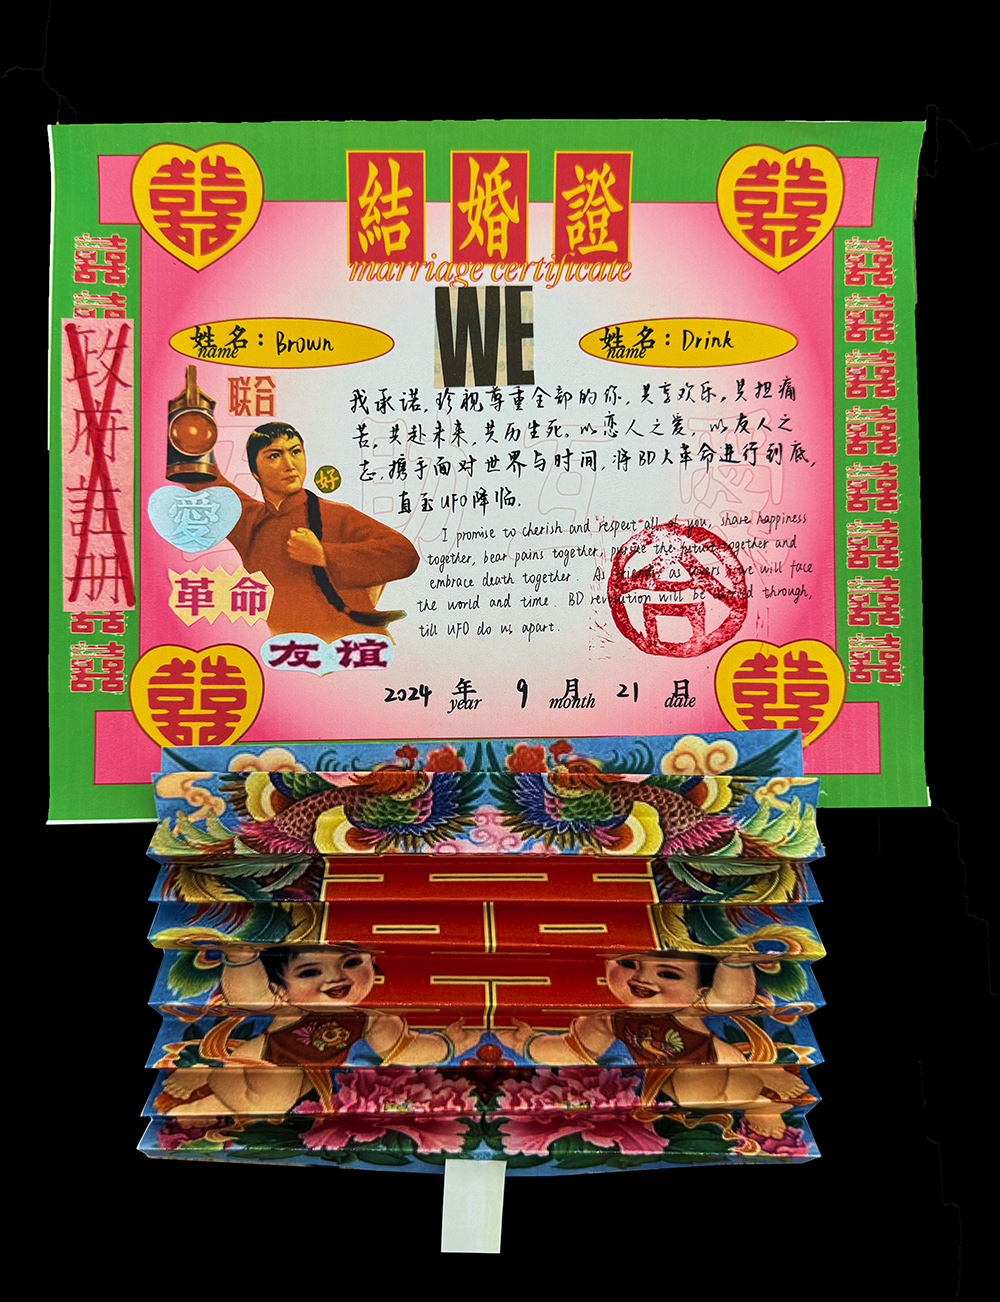 結婚證
marriage certificate
WE
姓名：Brown
name
姓名：Drink
name
政府註册
联合
好
愛
革命
友谊
我承诺，珍视尊重全部的你，共享欢乐，共担痛
苦，共赴未来，共历生死。以恋人之爱，以友人之
志，携手面对世界与时间，将BD大革命进行到底，
直至UFO降临.
I promise to cherish and respect all of you, share happiness
together, bear pains together, pursue the future together and
embrace death together. As friends as lovers we will face
the world and time. BD revolution will be carried through,
till UFO do us apart.
2024 年 9 月 21 日
year month date
囍
囍
囍
囍